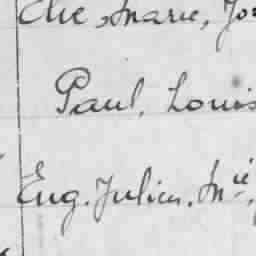 Elie, Marie, Jo
Paul, Louis
Eug. Julien. Mie,